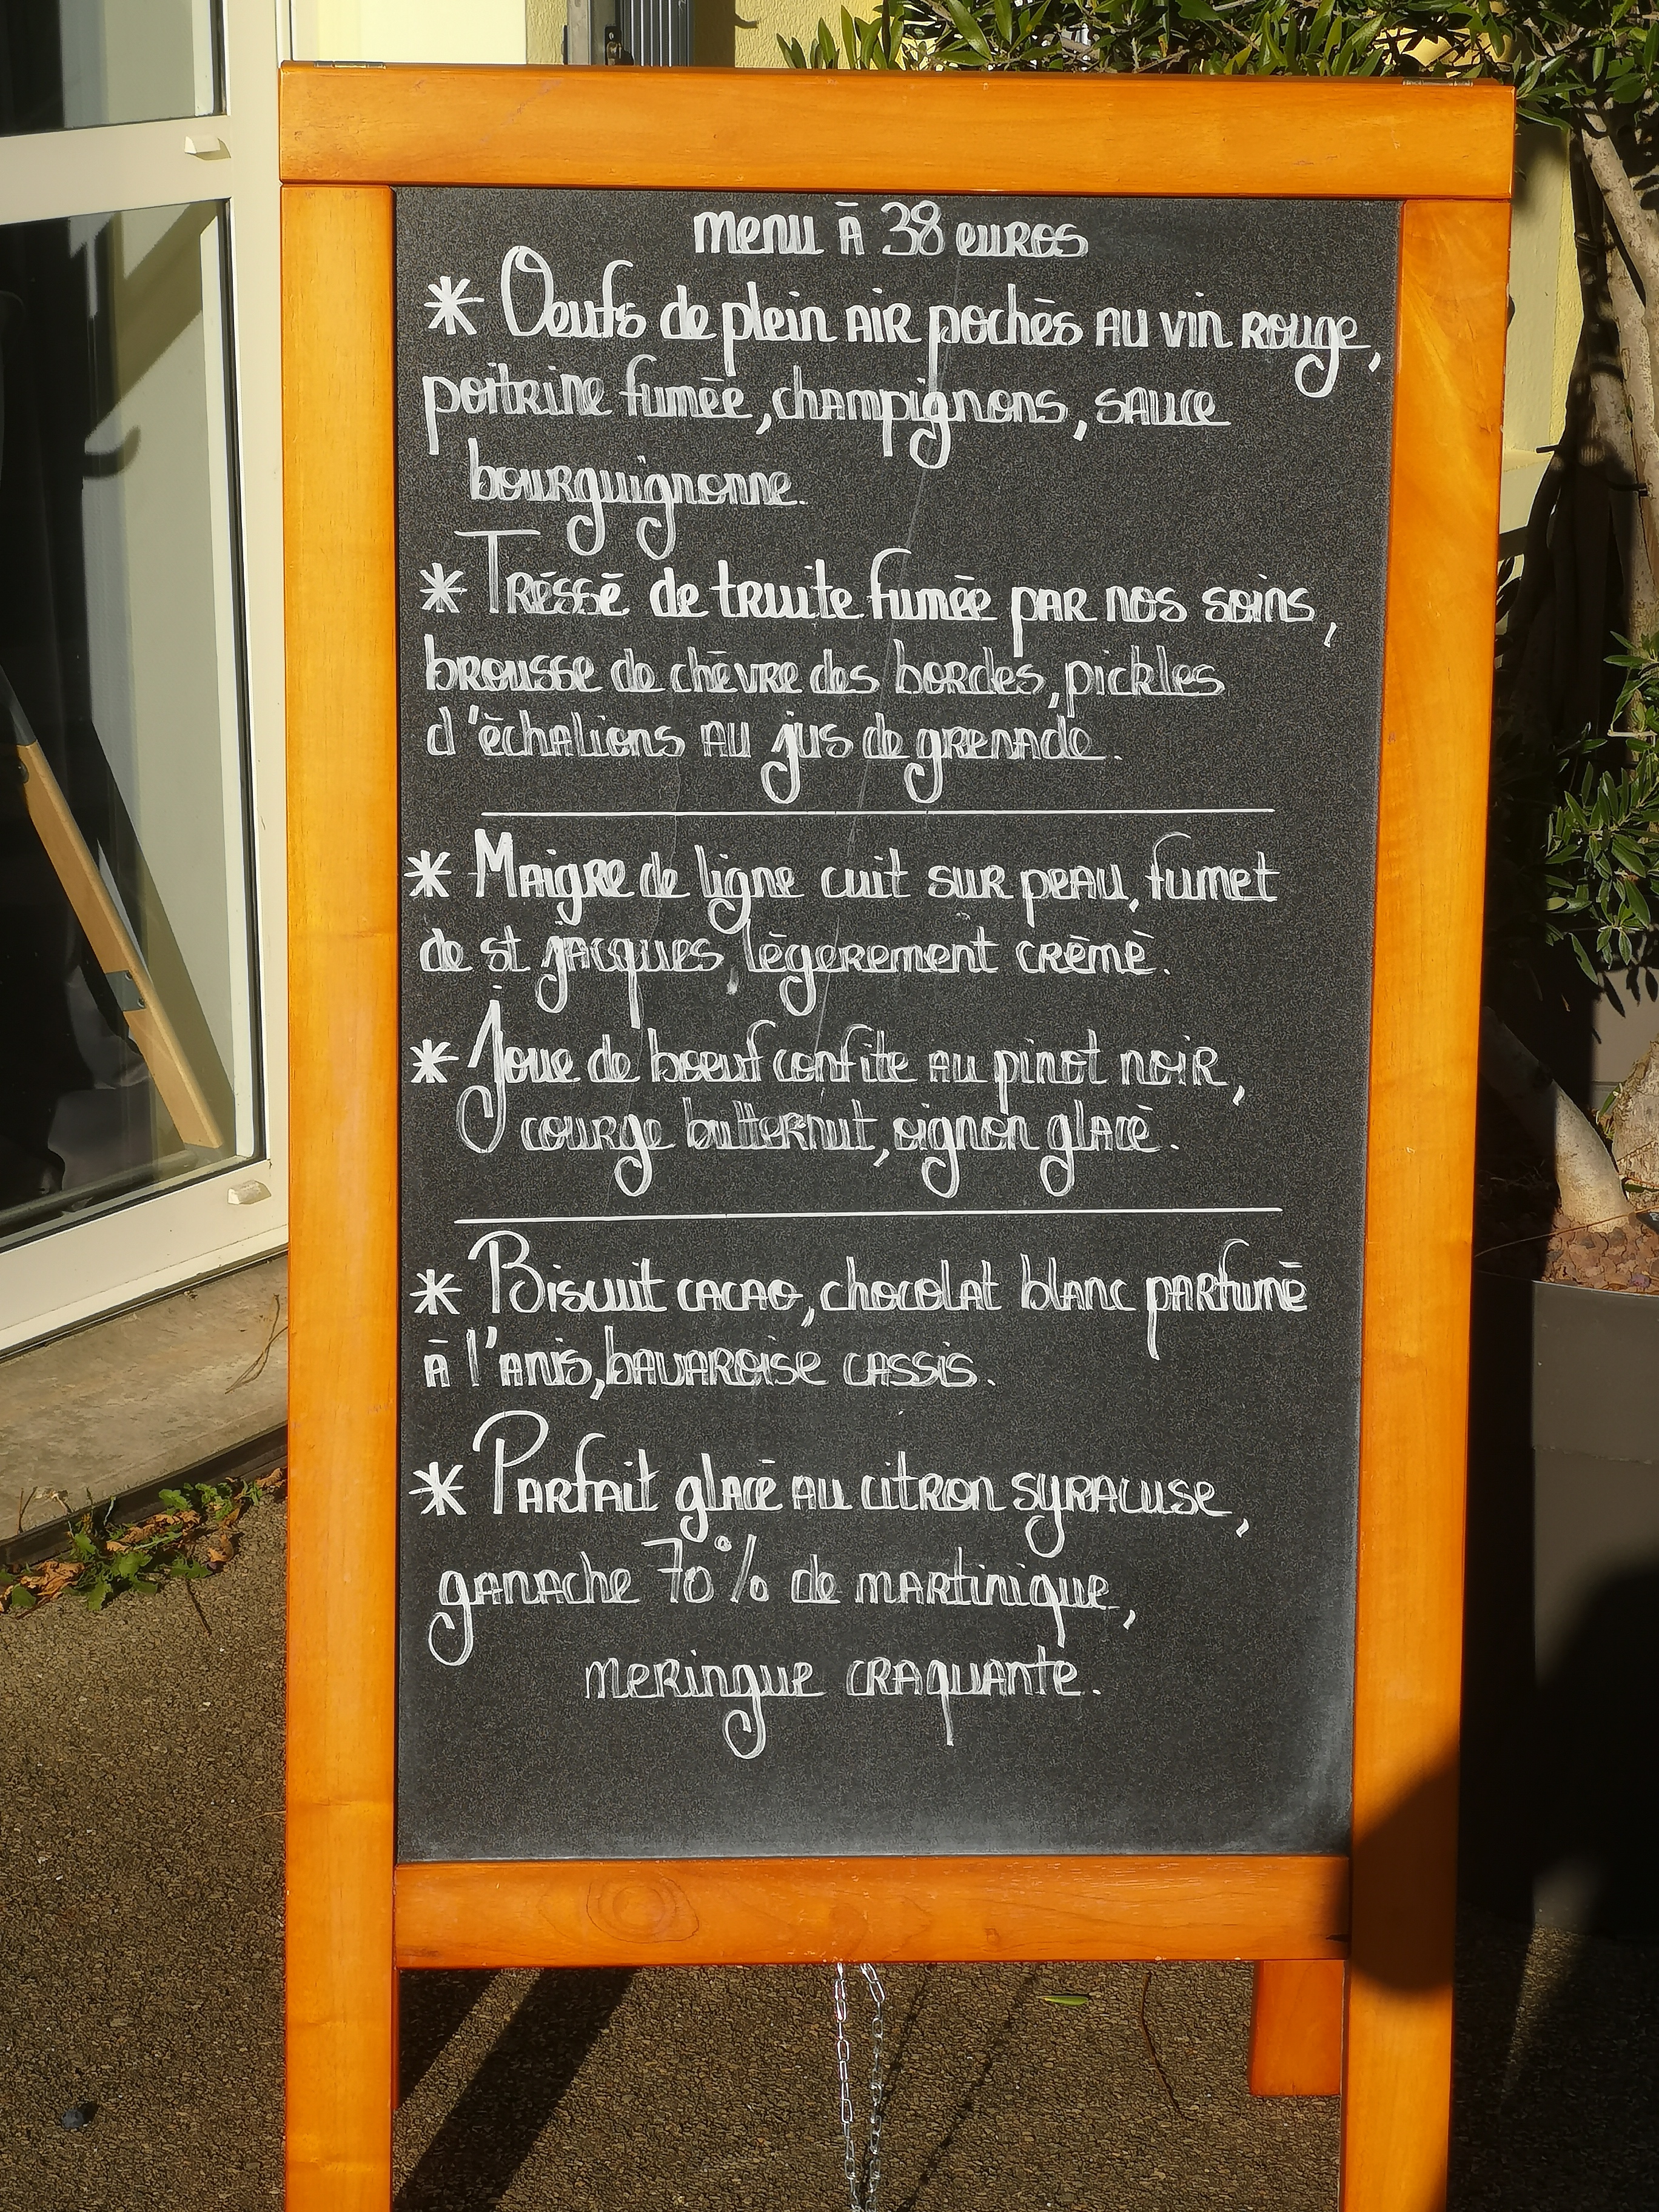 menu à 38 euros
* Oeufs de plein air pochés au vin rouge,
poitrine fumée, champignons, sauce
bourguignonne.
* Tréssé de truite fumée par nos soins,
brousse de chèvre des bordes, pickles
d'échalions au jus de grenade.
* Maigre de ligne cuit sur peau, fumet
de st jacques légerement crémé.
* Joue de boeuf confite au pinot noir,
courge butternut, oignon glacé.
* Biscuit cacao, chocolat blanc parfumé
à l'anis, bavaroise cassis.
* Parfait glacé au citron syracuse,
ganache 70% de martinique,
meringue craquante.